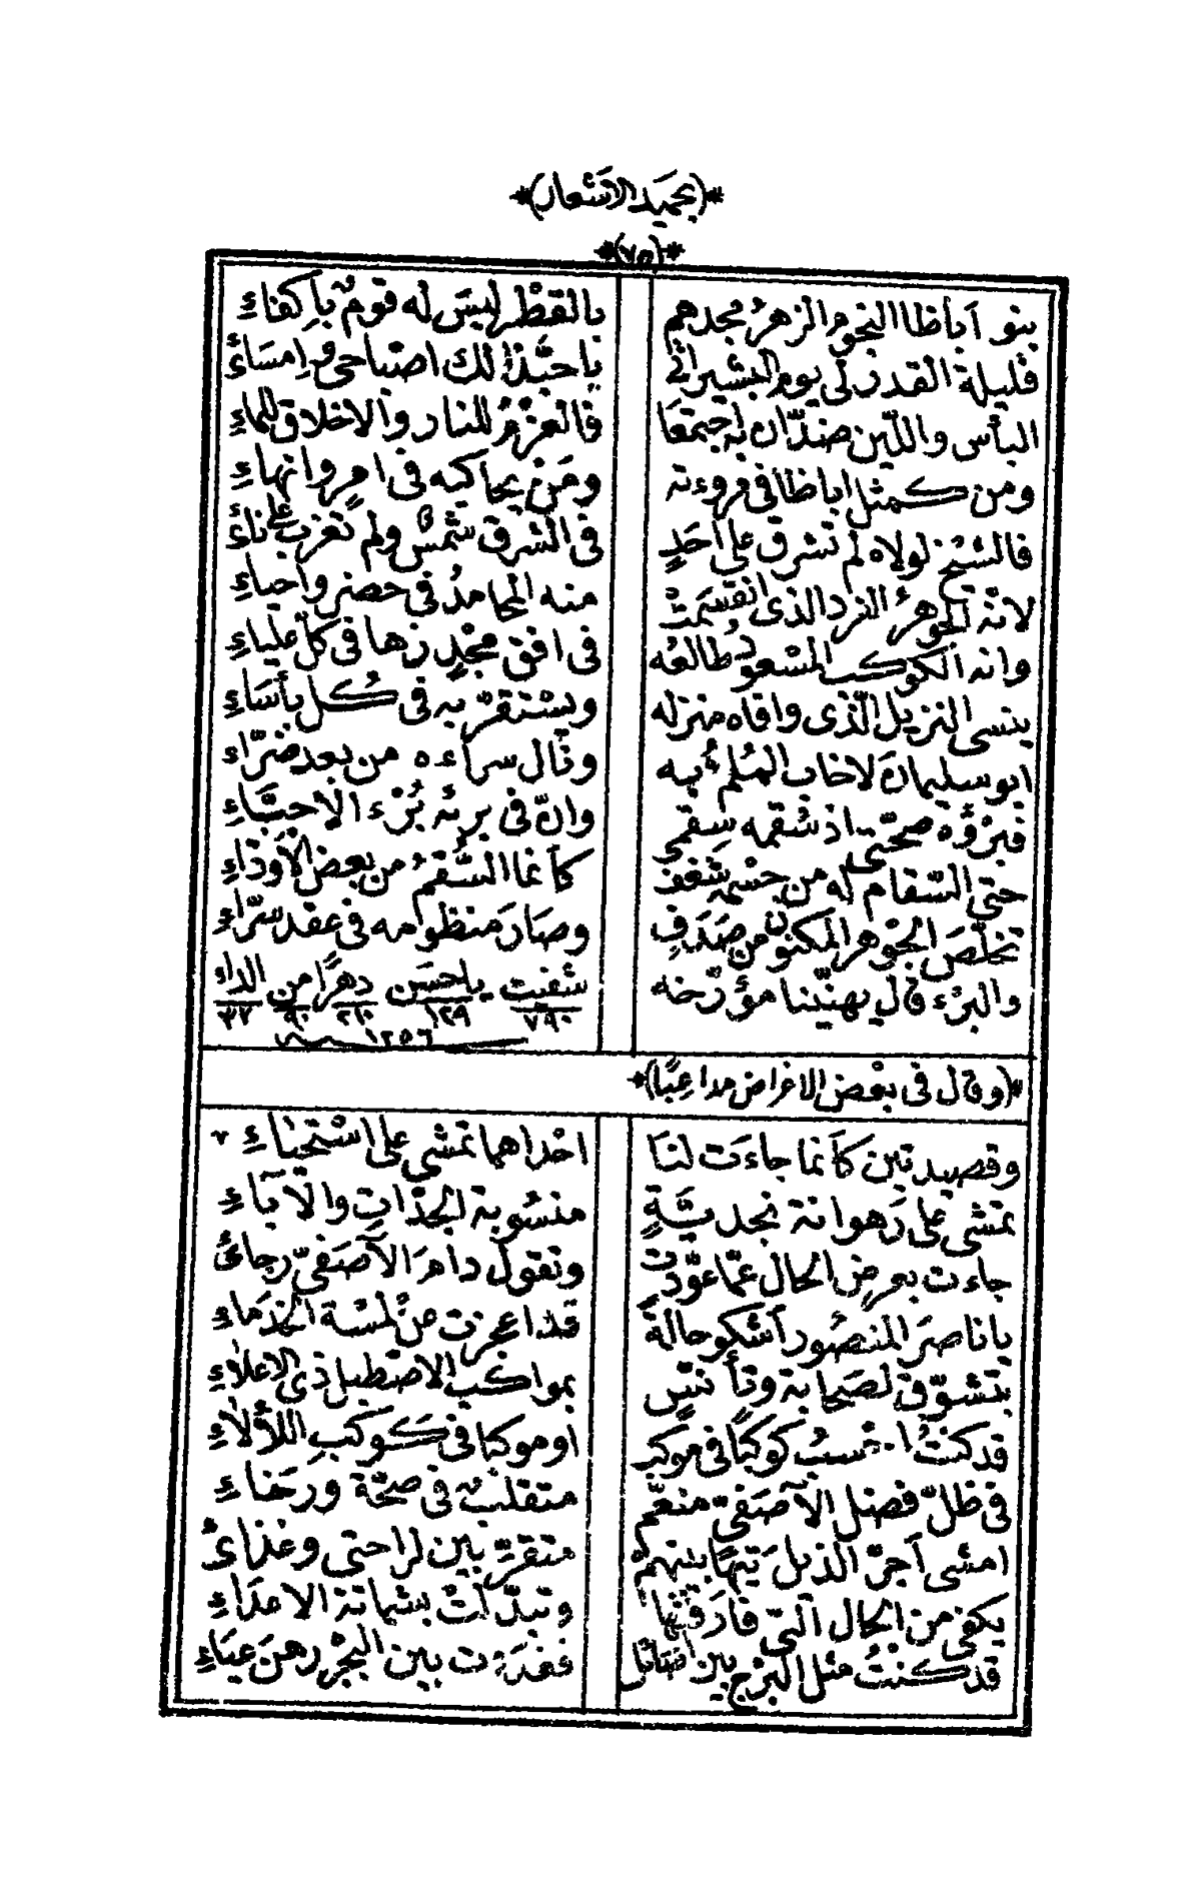 ﴿بحميد الاشعار﴾
﴿٧٥﴾
بنو أباظا النجوم الزهرُ مجدهم بالقطْر ليسَ له قومٌ بأِكفاءِ
فليلة القدر لى يوم البشير اتى ياحبَّذا لك اصْباحى وإمسَاءُ
البأس واللّين ضدّان به اجتمعَا فالعزْمُ للنار والاخلاق للماءِ
ومن كمثل اباظا فى مروءته ومَنْ يحاكيه فى امرٍ وانهاءِ
فالشيْخ لولاه لم تشرق على أحَدٍ فى الشرق شمْسٌ ولم تغرب على ناءُ
لانّه الجوهرُ الفرد الذى انقسَمتْ منه المحامدُ فى حضر واحياءِ
وانه الكوكب المسْعودُ طالعُه فى افق مجْدٍ زها فى كلّ علياءِ
ينسى النزيل الّذى وافاه منزله ويسْتقرّ به فى كُل بأسَاءِ
ابو سليمانَ لاخاب المُلمُّ به ونال سراءه من بعد ضرّاء
فبرْؤه صحّتى اذ سُقمه سقمى وانّ فى برئه بُرْء الأحبَّاءِ
حتى السّقام له من جسْمه شغف كأنما السُّقمُ من بعض الأوذاءِ
تخلّصَ الجوْهر المكنون من صَدَفٍ وصَارَ منظومه فى عقد سرّاءِ
والبرْء قال يهنّينا مؤرّخه شفيت ياحسَن دهرًا من الداء
٧٩٠ ١٢٩ ٢١٠ ٩٠ ٣٧
١٢٥٦ سنة
﴿وقال فى بعْض الاغراض مداعبًا﴾
وقصيدتين كأنما جاءَت لنَا احْداهما تمشى على اسْتحْيَاءِ ٧
تمشى على رَهوانة نجديَّةٍ منسُوبة الجدّاتِ والآباءِ
جاءت بعرضِ الحال عمّا عوّدت وتقول دامَ الآصَفىّ رجائى
ياناصرَ المنصُور أشكو حالةً قد اعجزت منْ لمسْة الخدَماءِ
يتشوّق لصَحابة وتأنّسٍ بمواكب الاصْطبل ذى الاعلاءِ
قد كنتُ احسبُ كوكبًا فى موكبٍ اوموكبا فى كَوكبِ اللألاءِ
فى ظلّ فضل الآصَفىّ منعّم متقلبٌ فى صحّة ورخاءِ
امشى أجرّ الذيلَ تيهًا بينهمْ متقرّ بين لراحتى وغذائى
يكفى من الحال الّتى فارَقتها وتبدّلتْ بشماتة الاعدَاءِ
قد كنتُ مثل البرْج بين فغدَوت بين البحْر رهنَ عيَاءِ